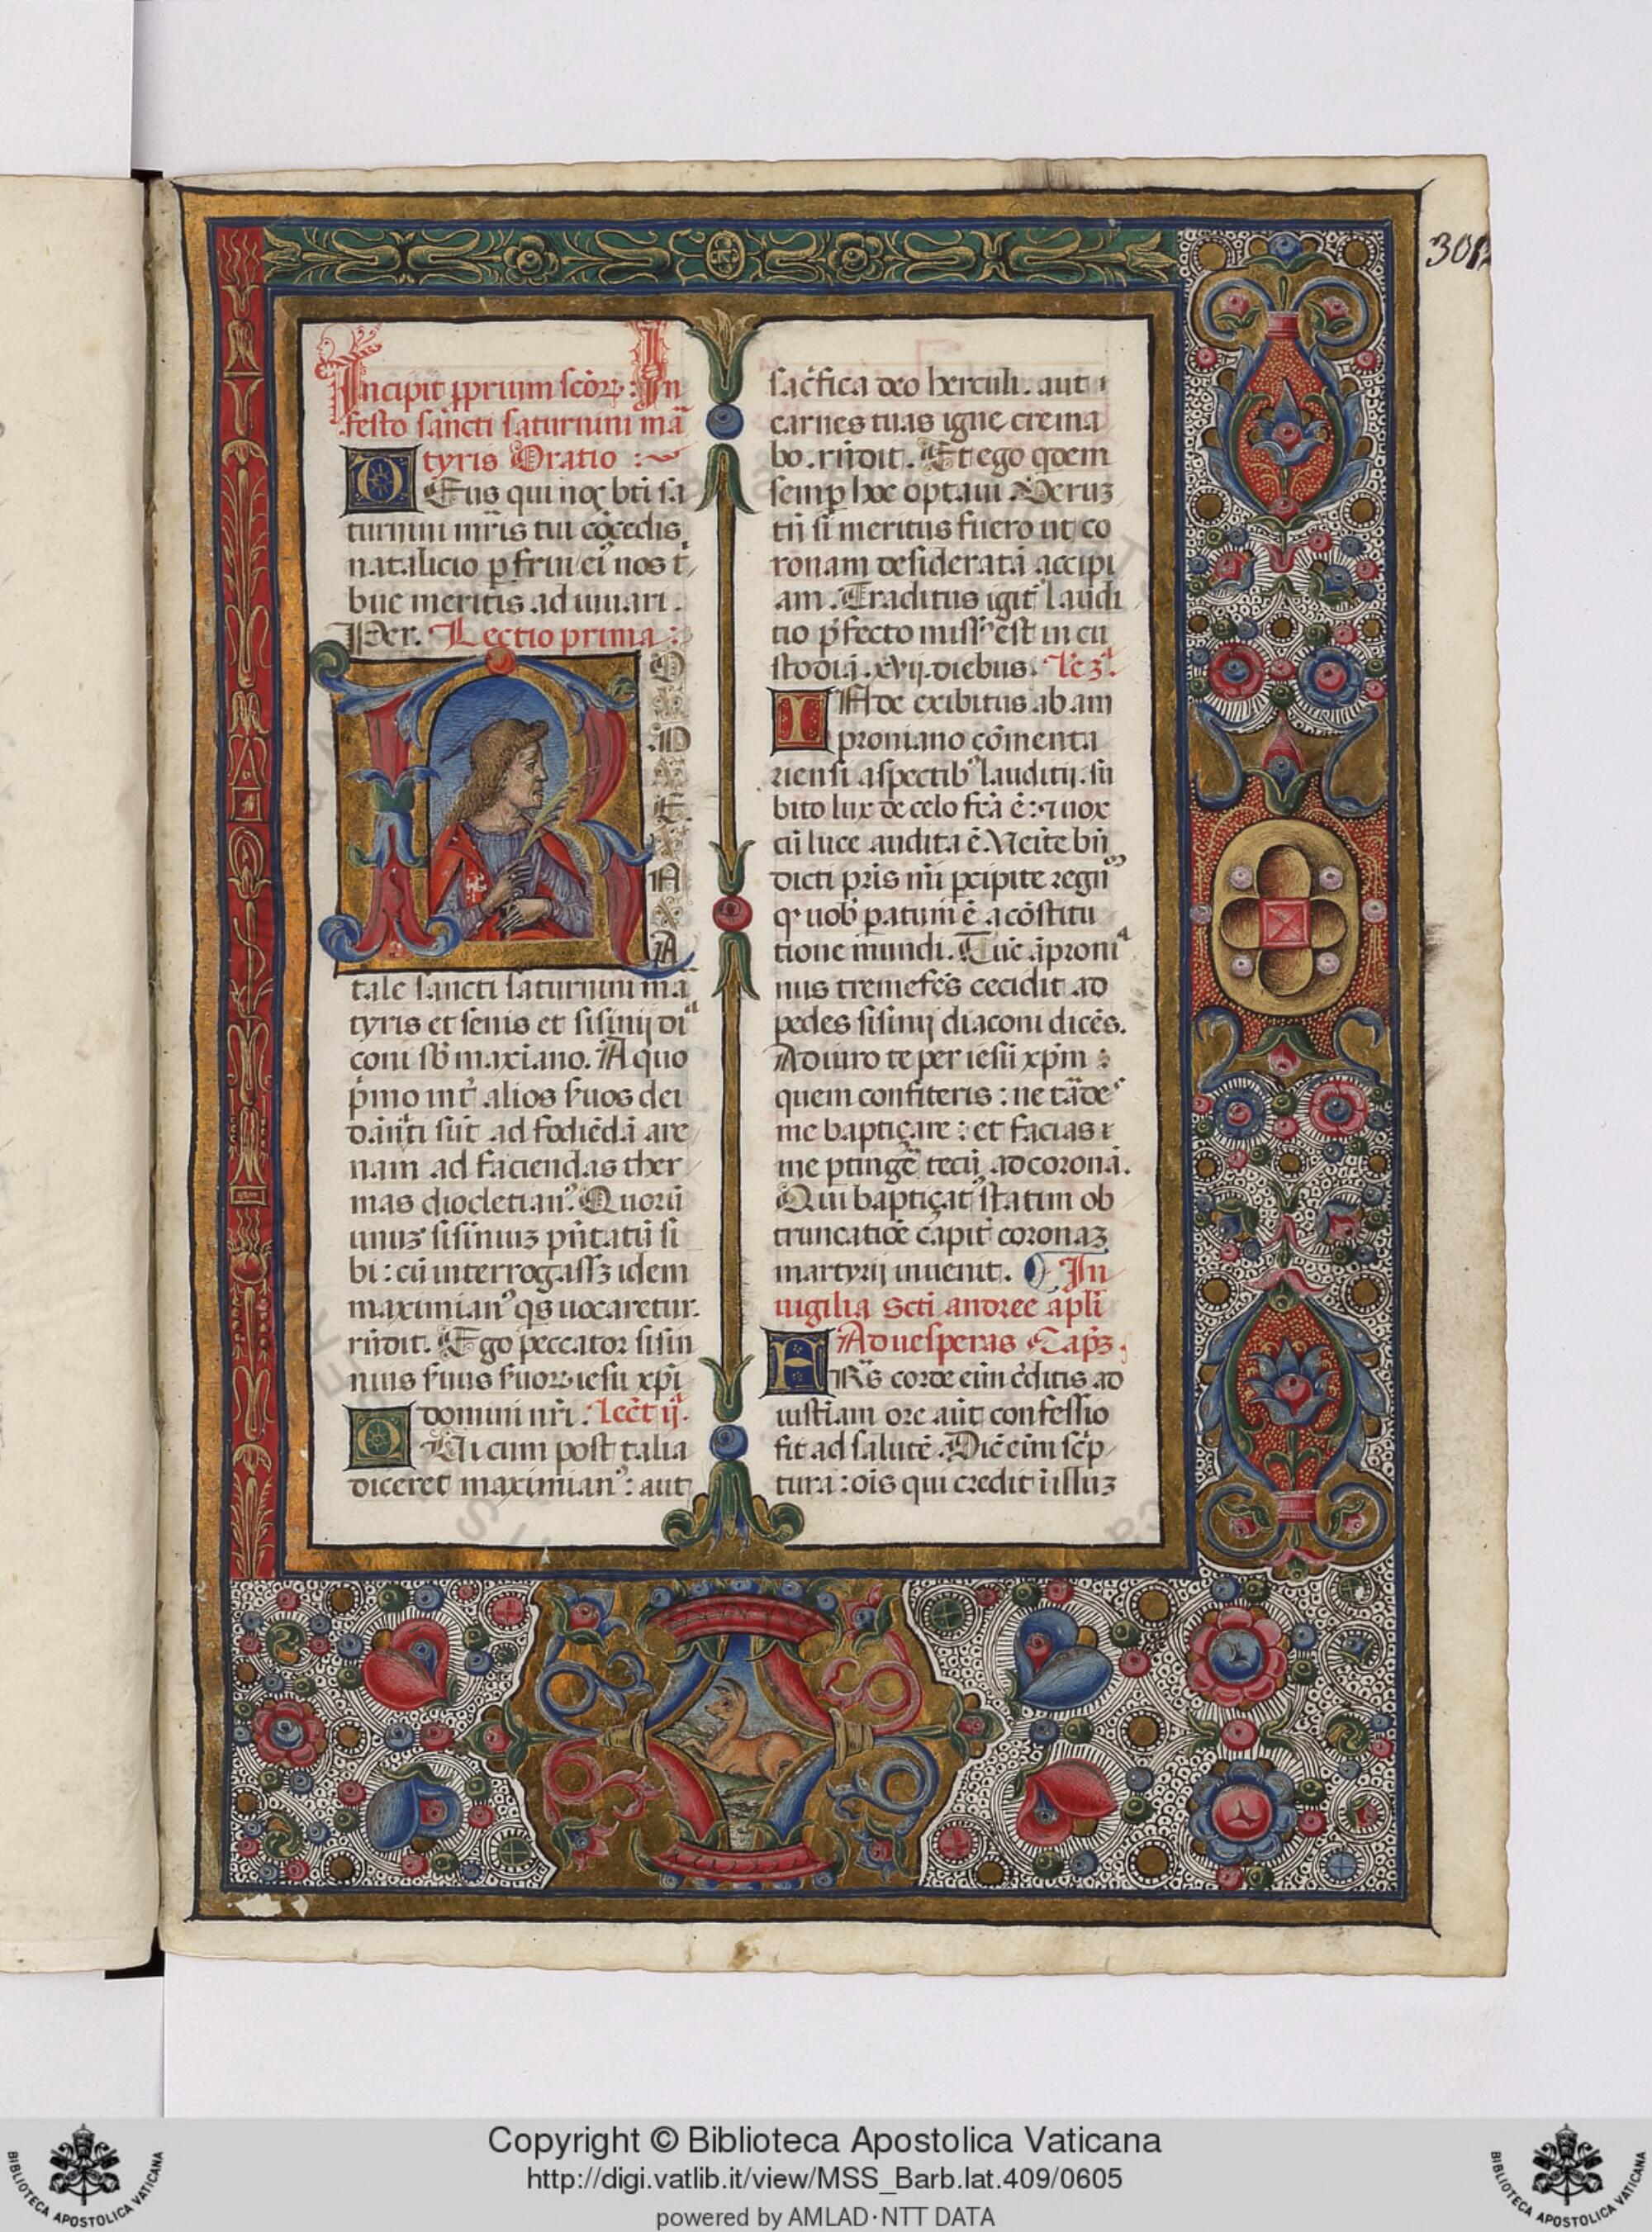 Incipit pprium scōꝝ. In
festo sancti saturnini mā
tyris Oratio :~
DEus qui noꝫ bti sa
turnini mr̄is tui cōcedis
natalicio ꝑfrui ei' nos t̄
bue meritis adiuuari.
Per. Lectio prima :
R
O
M
E
N
A
tale sancti saturnini mā
tyris et senis et sisinij di
coni sb̄ maxiano. A quo
pͥmo int̄ alios ẜuos dei
dānati sūt ad fodiēdā are
nam ad faciendas ther
mas diocletian'. Quorū
unuꝫ sisinuiꝫ pn̄tatū si
bi : cū interrogassꝫ idem
maximian' qͥs uocaretur.
rn̄dit. Ego peccator sisin
nius ẜuus ẜuoꝝ iesu xp̄i
domini nr̄i. Lect ij.
CUi cum post talia
diceret maximian' : aut
sacͥfica deo herculi. aut
carnes tuas igne crema
bo. rn̄dit. Et ego qͥdem
semꝑ hoc optaui. Veruꝫ
tn̄ si meritus fuero ut co
ronam desideratā accipi
am. Traditus igit᷑ laudi
tio p̄fecto miss' est in cu
stodiā .xvij. diebus. Le3ͣ.
INde exibitus ab am
proniano cōmenta
riensi aspectib' lauditij. su
bito lux de celo fcā ē : ⁊ uox
cū luce audita ē. Ueite bn̄
dicti pr̄is mi ꝑcipite regnū
qͦ uob' paratum ē a cōstitu
tione mundi. Tūc apronia
nus tremefcs cecidit ad
pedes sisinij diaconi dicēs.
Adiuro te per iesū xp̄m :
quem confiteris : ne tādes
me baptiçare : et facias ⁊
me ptingē tecū ad coronā.
Qui baptiçat' statim ob
truncatiōe capit᷑ coronaꝫ
martyrij inuenit. In
uigilia scti andree apli
Ad uesperas Capꝫ.
FRs̄ corde eim c̄ditis ad
iustiam ore aūt confessio
fit ad salutē. Dic̄ eim sc̄p
tura : ois qui credit i illuꝫ
Copyright © Biblioteca Apostolica Vaticana
http://digi.vatlib.it/view/MSS_Barb.lat.409/0605
powered by AMLAD·NTT DATA
BIBLIOTECA APOSTOLICA VATICANA
BIBLIOTECA APOSTOLICA VATICANA